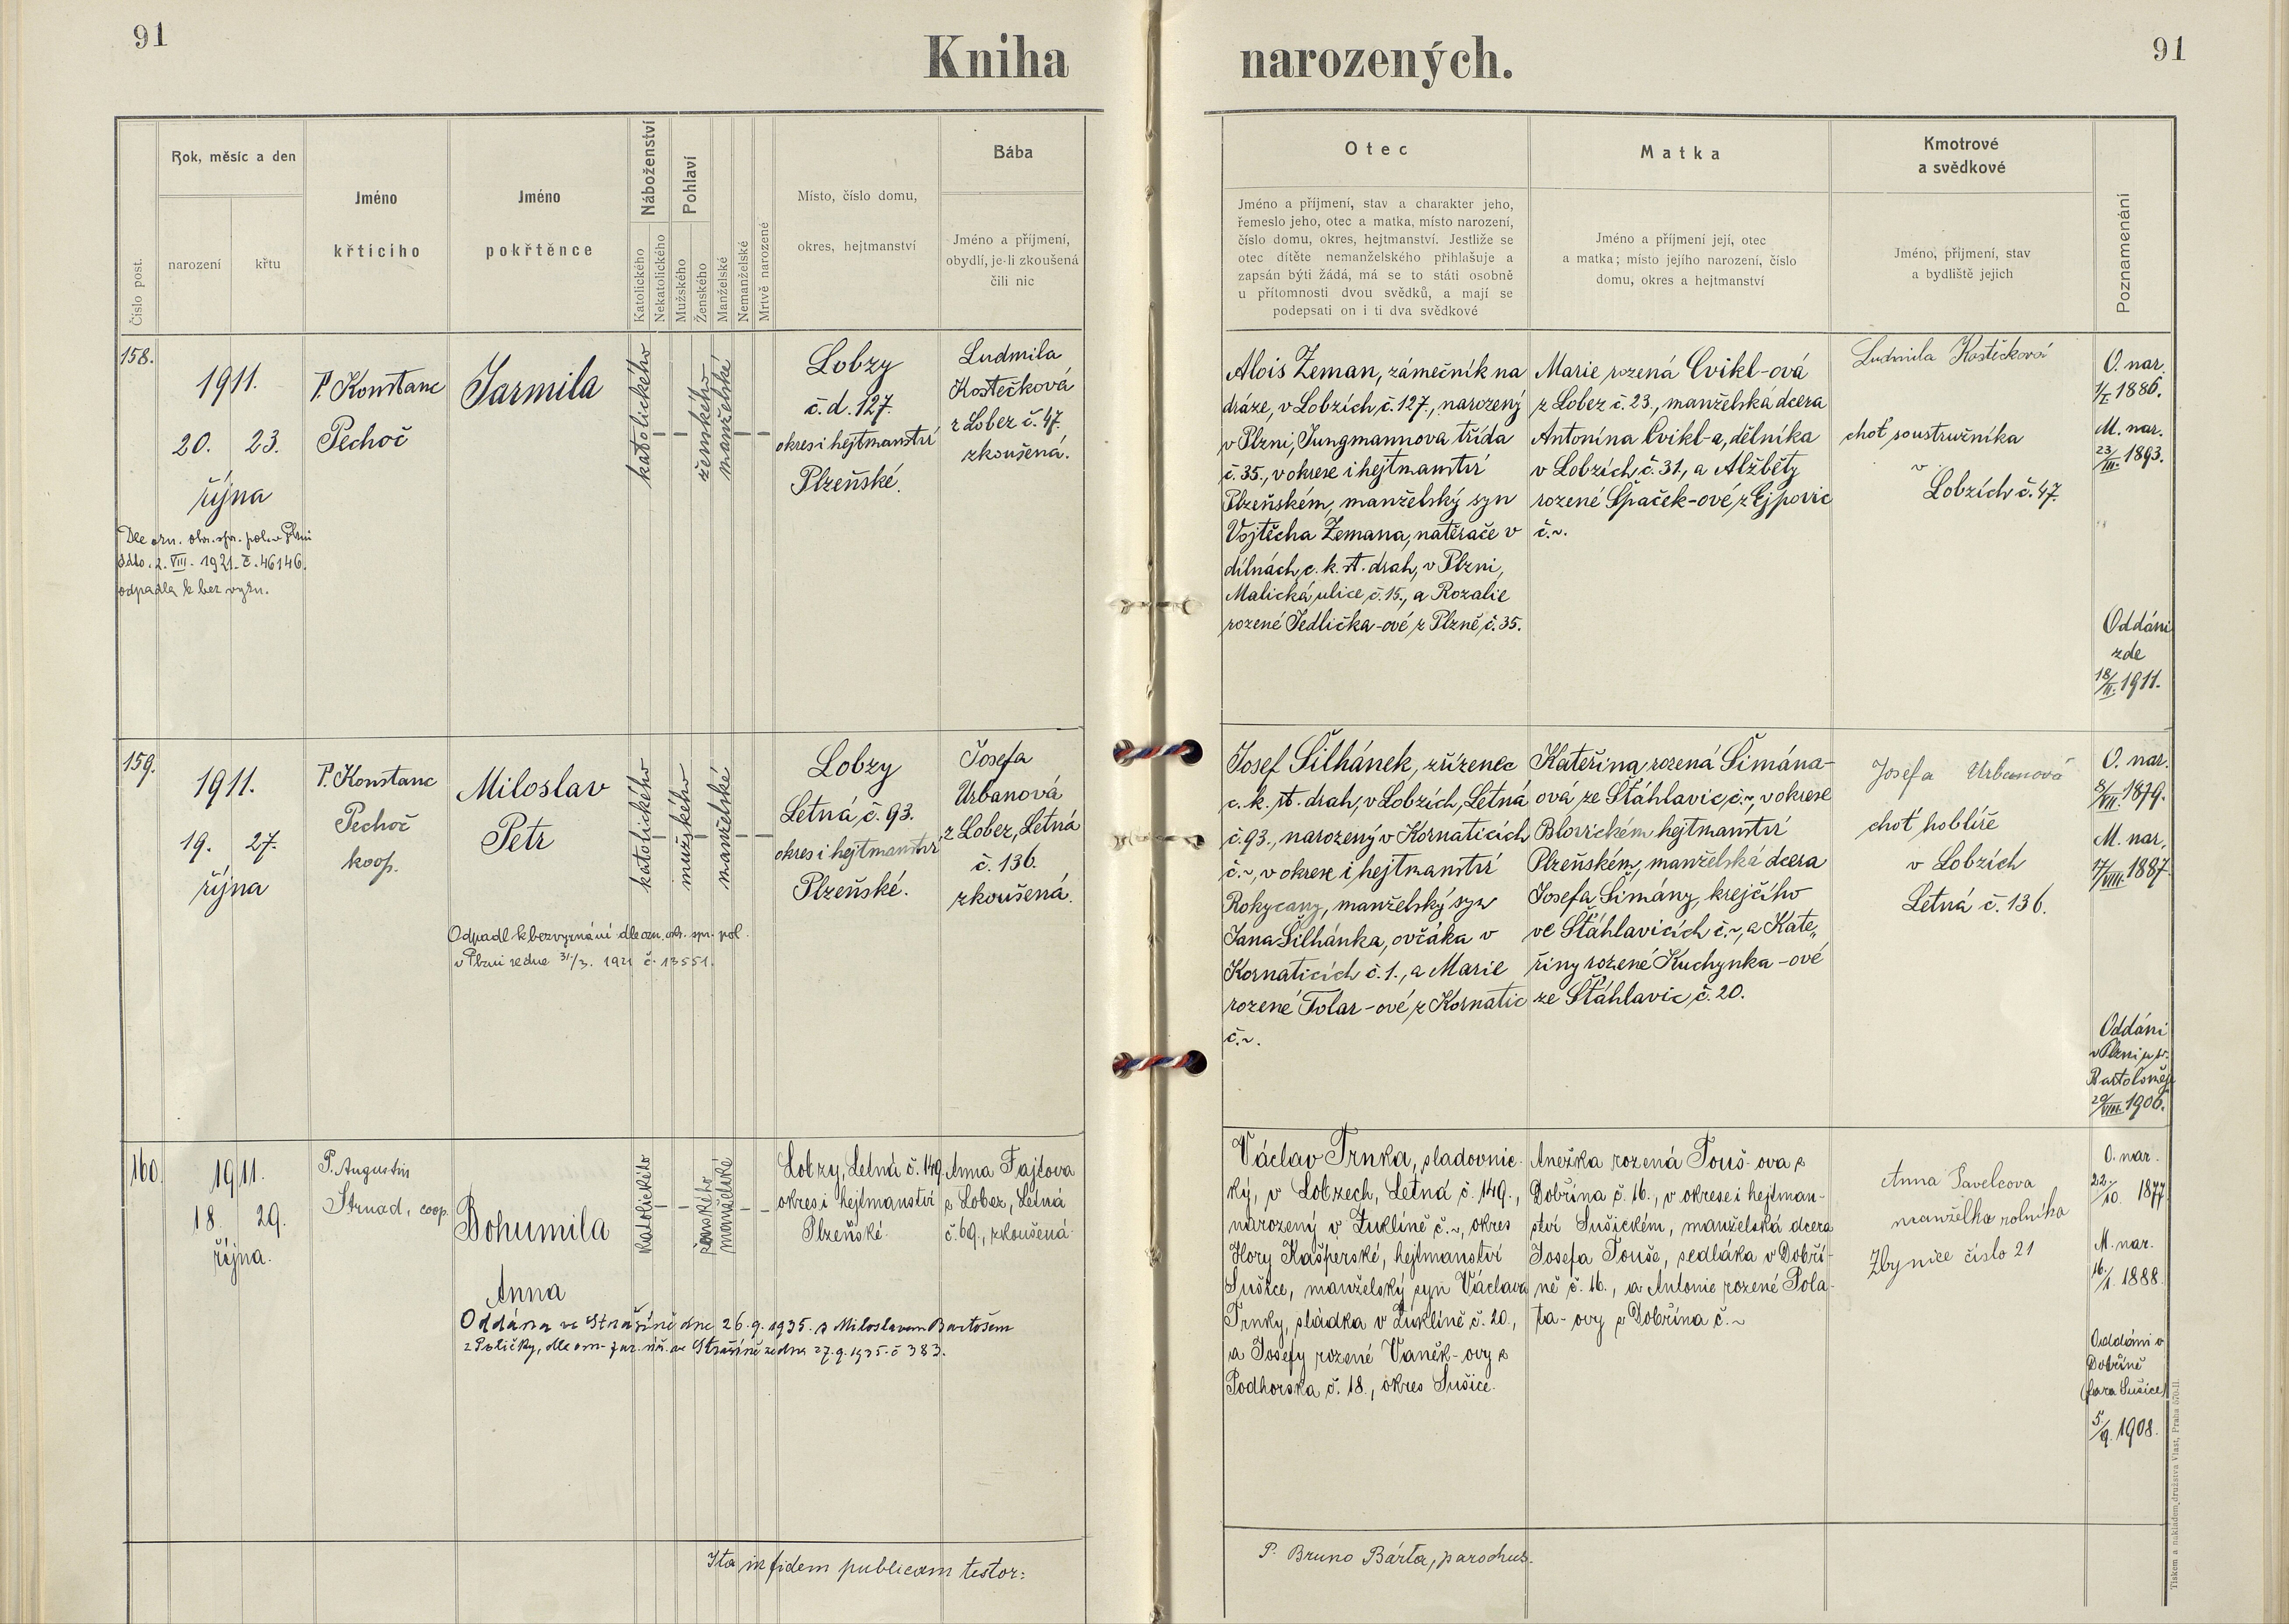 91
Kniha narozených.
91
Číslo post.
Rok, měsíc a den
narození
křtu
Jméno
křtícího
Jméno
pokřtěnce
Náboženství
Katolického
Nekatolického
Pohlaví
Mužského
Ženského
Manželské
Nemanželské
Mrtvě narozené
Místo, číslo domu,
okres, hejtmanství
Bába
Jméno a příjmení,
obydlí, je-li zkoušená
čili nic
Otec
Jméno a příjmení, stav a charakter jeho,
řemeslo jeho, otec a matka, místo narození,
číslo domu, okres, hejtmanství. Jestliže se
otec dítěte nemanželského přihlašuje a
zapsán býti žádá, má se to státi osobně
u přítomnosti dvou svědků, a mají se
podepsati on i ti dva svědkové
Matka
Jméno a příjmení její, otec
a matka; místo jejího narození, číslo
domu, okres a hejtmanství
Kmotrové
a svědkové
Jméno, příjmení, stav
a bydliště jejich
Poznamenání
158.
1911.
20. 23.
října
Dle ozn. okr. spr. pol. v Plzni
ddto. 2. VIII. 1921. č. 46146.
odpadla k bez vyzn.
P. Konstanc
Pechoč
Jarmila
katolického
ženského
manželské
Lobzy
č. d. 127.
okres i hejtmanství
Plzeňské.
Ludmila
Kostečková
z Lobez č. 47.
zkoušená.
Alois Zeman, zámečník na
dráze, v Lobzích, č. 127., narozený
v Plzni, Jungmannova třída
č. 35., v okrese i hejtmanství
Plzeňském, manželský syn
Vojtěcha Zemana, natěrače v
dílnách c. k. st. drah, v Plzni,
Malická ulice, č. 15., a Rozalie
rozené Jedlička-ové z Plzně, č. 35.
Marie rozená Cvikl-ová
z Lobez č. 23., manželská dcera
Antonína Cvikl-a, dělníka
v Lobzích, č. 31, a Alžběty
rozené Špaček-ové, z Ejpovic
č. ~.
Ludmila Kostečková
choť soustružníka
v
Lobzích č. 47.
O. nar.
1/I. 1886.
M. nar.
23/III. 1893.
Oddáni
zde
18/II. 1911.
159.
1911.
19. 27.
října
P. Konstanc
Pechoč
koop.
Miloslav
Petr
Odpadl k bezvyznání dle ozn. okr. spr. pol.
v Plzni ze dne 31/3. 1921 č. 13551.
katolického
mužského
manželské
Lobzy
Letná, č. 93.
okres i hejtmanství
Plzeňské.
Josefa
Urbanová
z Lobez, Letná
č. 136.
zkoušená.
Josef Šilhánek, zřízenec
c. k. st. drah, v Lobzích, Letná
č. 93., narozený v Kornaticích
č. ~, v okrese i hejtmanství
Rokycany, manželský syn
Jana Šilhánka, ovčáka v
Kornaticích č. 1., a Marie
rozené Tolar-ové, z Kornatic
č. ~.
Kateřina, rozená Šimána-
ová ze Štáhlavic, č. ~, v okrese
Blovickém hejtmanství
Plzeňském, manželská dcera
Josefa Šimány, krejčího
ve Štáhlavicích č. ~, a Kate„
řiny rozené Kuchynka-ové
ze Štáhlavic, č. 20.
Josefa Urbanová
choť hoblíře
v Lobzích
Letná č. 136.
O. nar.
8/VII. 1879.
M. nar.
17/VIII. 1887.
Oddáni
v Plzni u sv.
Bartoloměje
20/VIII. 1906.
160.
1911.
18. 29.
října.
P. Augustin
Strnad, coop.
Bohumila
Anna
Oddána ve Strašíně dne 26. 9. 1935. s Miloslavem Bartošem
z Poličky, dle ozn. far. úř. ve Strašíně ze dne 27. 9. 1935. č 383.
katolického
ženského
manželské
Lobzy, Letná č. 149.
okres i hejtmanství
Plzeňské.
Anna Fajtova
z Lobez, Letná
č. 69., zkoušená.
Václav Trnka, sladovnic-
ký, v Lobzech, Letná č. 149.,
narozený v Žuklíně č. ~, okres
Hory Kašperské, hejtmanství
Sušice, manželský syn Václava
Trnky, sládka v Žuklíně č. 20.,
a Josefy rozené Vaněk-ovy z
Podhorska č. 18., okres Sušice.
Anežka rozená Touš-ova z
Dobřína č. 16., v okrese i hejtman-
ství Sušickém, manželská dcera
Josefa Touše, sedláka v Dobří-
ně č. 16., a Antonie rozené Pola-
ta-ovy z Dobřína č. ~
Anna Pavelcova
manželka rolníka
Zbynice číslo 21
O. nar.
22/10. 1877.
M. nar.
16/1. 1888.
Oddáni v
Dobříně
(fara Sušice)
5/9. 1908.
Ita in fidem publicam testor:
P. Bruno Bárta, parochus.
Tiskem a nákladem družstva Vlast, Praha 570-II.